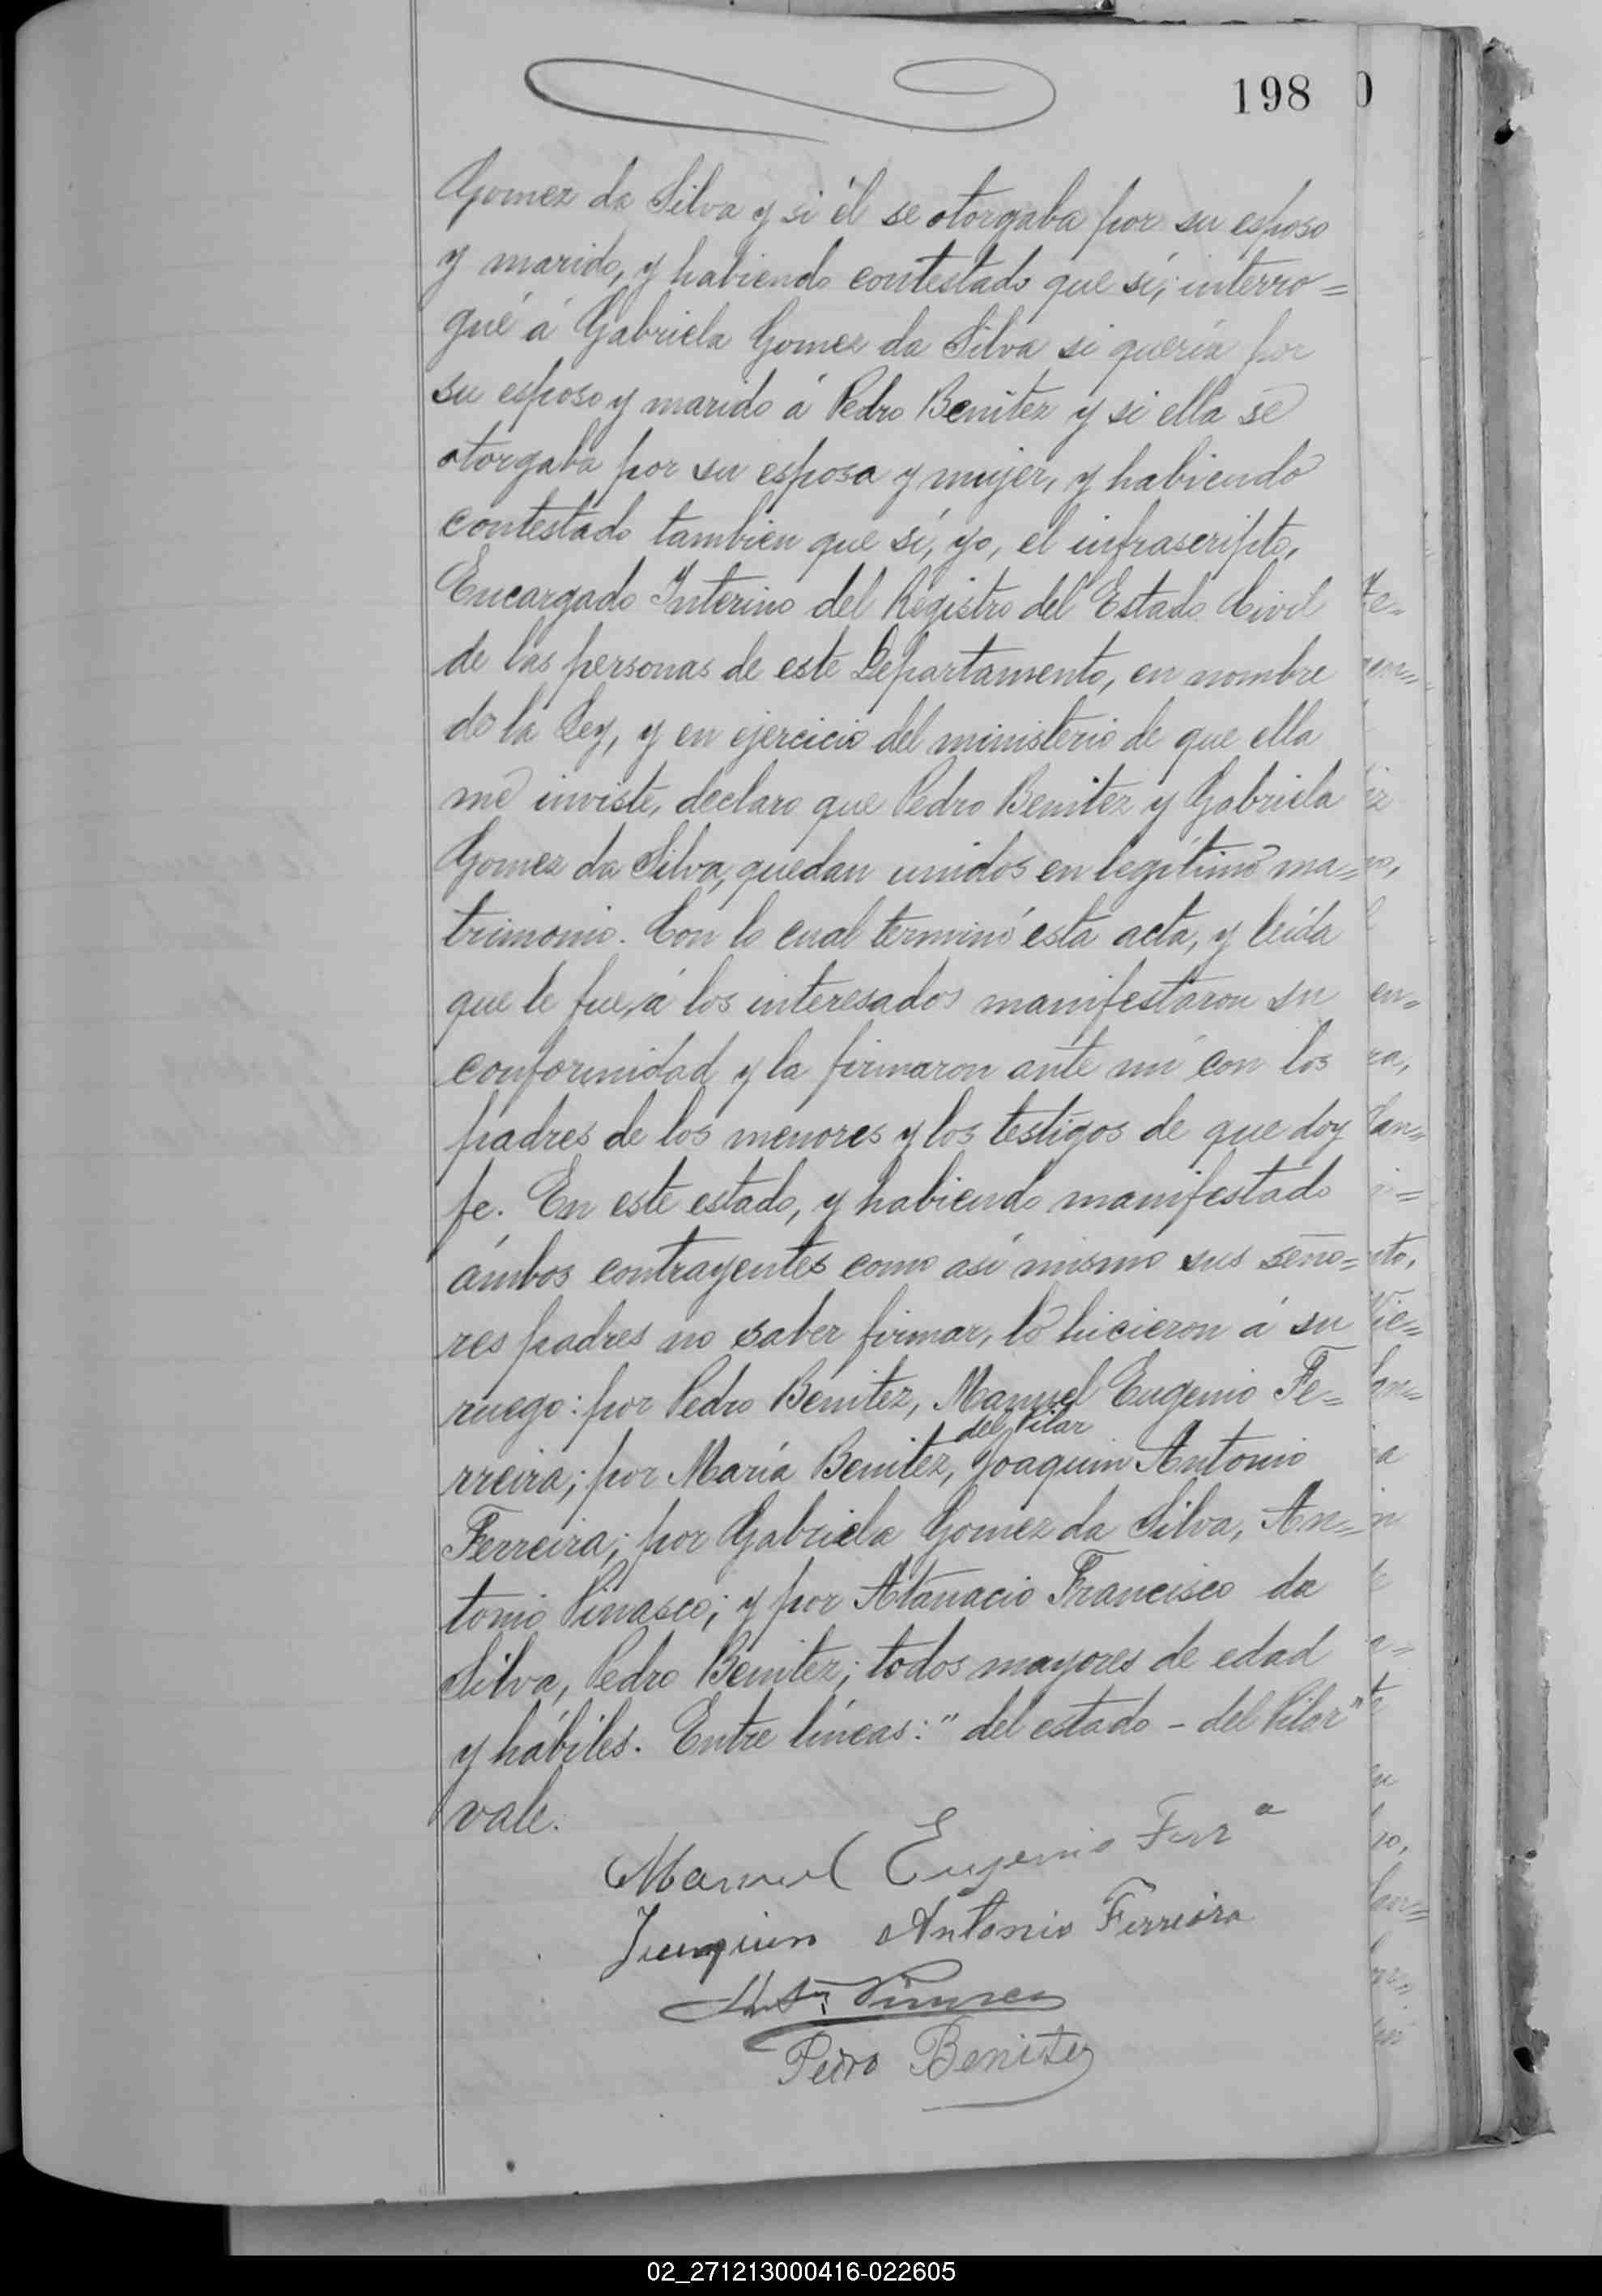 198
Gomez da Silva y si él se otorgaba por su esposo
y marido, y habiendo contestado que sí; interro=
gué á Gabriela Gomez da Silva si quería por
su esposo y marido á Pedro Benitez y si ella se
otorgaba por su esposa y mujer, y habiendo
contestado tambien que sí, yo, el infrascripto,
Encargado Interino del Registro del Estado Civil
de las personas de este Departamento, en nombre
de la Ley, y en ejercicio del ministerio de que ella
me inviste, declaro que Pedro Benitez y Gabriela
Gomez da Silva, quedan unidos en legítimo ma=
trimonio. Con lo cual terminó esta acta, y leída
que le fue, á los interesados manifestaron su
conformidad y la firmaron ante mí con los
padres de los menores y los testigos de que doy
fe. En este estado, y habiendo manifestado
ámbos contrayentes como así mismo sus seño=
res padres no saber firmar, lo hicieron á su
ruego: por Pedro Benitez, Manuel Eugenio Fe=
del Pilar
rreira; por María Benitez, Joaquin Antonio
Ferreira; por Gabriela Gomez da Silva, An=
tonio Pinasco; y por Atanacio Francisco da
Silva, Pedro Benitez; todos mayores de edad
y hábiles. Entre líneas: "del estado - del Pilar"
vale.
Manuel Eugenio Ferrª
Juaquin Antonio Ferreira
Pinasco
Pedro Benitez
02_271213000416-022605